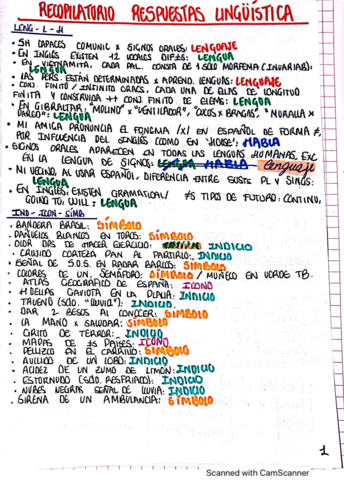 RECOPILATORIO RESPUESTAS LINGÜÍSTICA
LENG - L - H
• SH CAPACES COMUNIC x SIGNOS ORALES: LENGUAJE
• EN INGLÉS EXISTEN +12 VOCALES DIF: LENGUA
• EN VIETNAMITA, CADA PAL. CONSTA DE 1 SOLO MORFEMA (INVARIAB):
LENGUA
• LAS PERS. ESTÁN DETERMINADAS x APREND. LENGUAS: LENGUAJE
• CONJ. FINITO / INFINITO ORACS, CADA UNA DE ELLAS DE LONGITUD
FINITA Y CONSTRUIDA CONJ FINITO DE ELEMS: LENGUA
• EN GIBRALTAR, "MOLINO" x "VENTILADOR", "CUCOS x BRAGAS", "MURALLA x
LENGUA
• MI AMIGA PRONUNCIA EL FONEMA /x/ EN ESPAÑOL DE FORMA ≠,
POR INFLUENCIA DEL INGLÉS (COMO EN 'HOUSE'): HABLA
• SIGNOS ORALES APARECEN EN TODAS LAS LENGUAS HUMANAS, EXC
EN LA LENGUA DE SIGNOS: LENGUA HABLA Lenguaje
• MI VECINO, AL USAR ESPAÑOL, DIFERENCIA ENTRE SUST PL Y SING:
LENGUA
• EN INGLÉS, EXISTEN GRAMATICAL/ ≠S TIPOS DE FUTURO: CONTINUO,
GOING TO, WILL: LENGUA
IND - ICON - SÍMB
• BANDERA BRASIL: SÍMBOLO
• PAÑUELOS BLANCOS EN TOROS: SÍMBOLO
• DOLOR DAS DE HACER EJERCICIO: INDICIO
• CRUJIDO CORTEZA PAN AL PARTIRLO: INDICIO
• SEÑAL DE S.O.S. EN RADAR BARCOS: SÍMBOLO
• COLORES DE UN SEMÁFORO: SÍMBOLO / MUÑECO EN VERDE TB.
• ATLAS GEOGRÁFICO DE ESPAÑA: ICONO
• HUELLAS GAVIOTA EN LA PLAYA: INDICIO
• TRUENO (SGDO. "LLUVIA"): INDICIO
• DAR 2 BESOS AL CONOCER: SÍMBOLO
• LA MANO x SALUDAR: SÍMBOLO
• GRITO DE TERROR: INDICIO
• MAPAS DE ≠S PAÍSES: ICONO
• PELLIZCO EN EL CARRILLO: SÍMBOLO
• AULLIDO DE UN LOBO: INDICIO
• ACIDEZ DE UN ZUMO DE LIMÓN: INDICIO
• ESTORNUDO (SGDO. RESFRIADO): INDICIO
• NUBES NEGRAS SEÑAL DE LLUVIA: INDICIO
• SIRENA DE UN AMBULANCIA: SÍMBOLO
1
Scanned with CamScanner